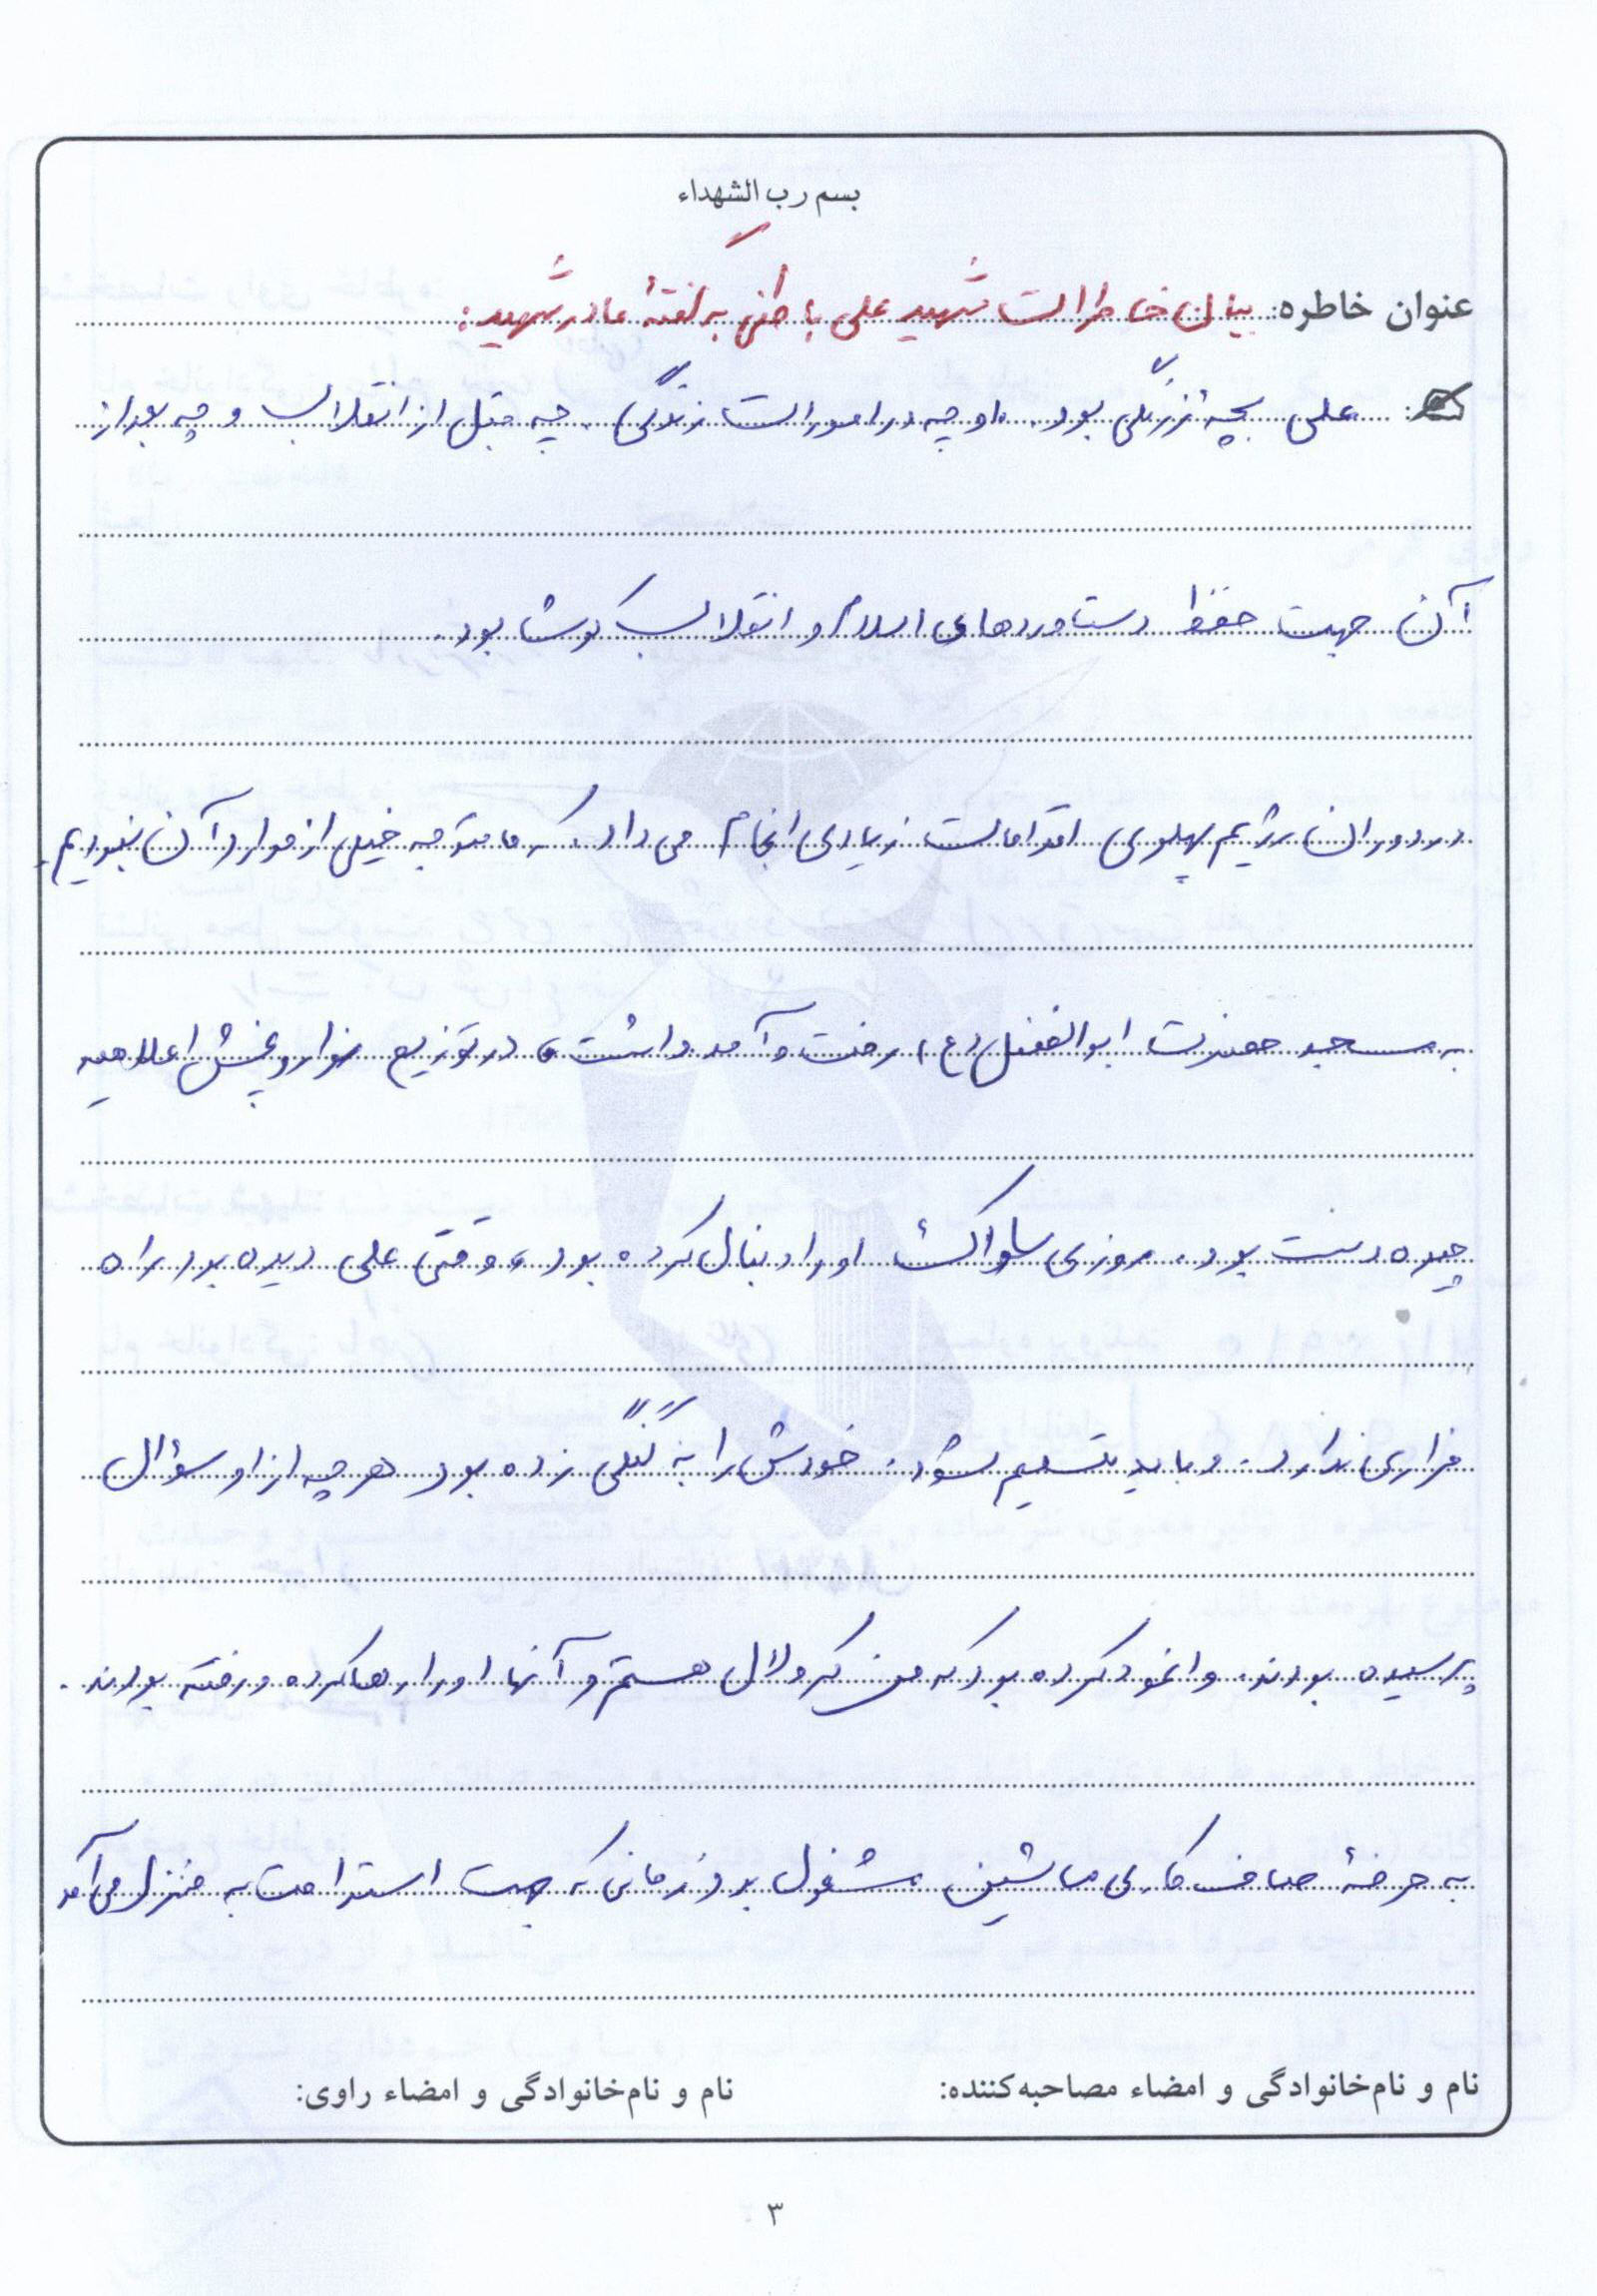 بسم رب الشهداء
عنوان خاطره: بیان خاطرات شهید علی باطنی به گفتهٔ مادر شهید:
علی بچهٔ زرنگی بود. او چه در امورات زندگی، چه قبل از انقلاب و چه بعد از
آن جهت حفظ دستاوردهای اسلام و انقلاب کوشا بود.
در دوران رژیم پهلوی اقدامات زیادی انجام می داد، که ما متوجه خیلی از موارد آن نبودیم.
به مسجد حضرت ابوالفضل (ع) رفت و آمد داشت، در توزیع نوار و پخش اعلامیه
چیره دست بود. روزی ساواک او را دنبال کرده بود، وقتی علی دیده بود راه
فراری ندارد. و باید تسلیم شود. خودش را به گنگی زده بود هر چه از او سؤال
پرسیده بودند. وانمود کرده بود که من کر و لال هستم و آنها او را رها کرده و رفته بودند.
به حرفهٔ صاف کاری ماشین مشغول بود و زمانی که جهت استراحت به منزل می آمد
نام و نام‌خانوادگی و امضاء مصاحبه‌کننده: نام و نام‌خانوادگی و امضاء راوی:
۳